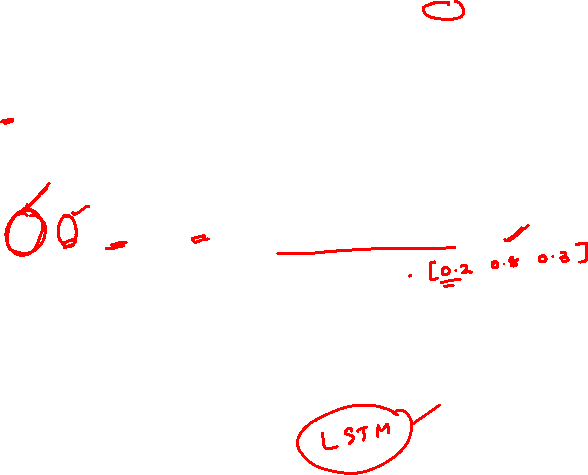 [0.2 0.8 0.3]
LSTM